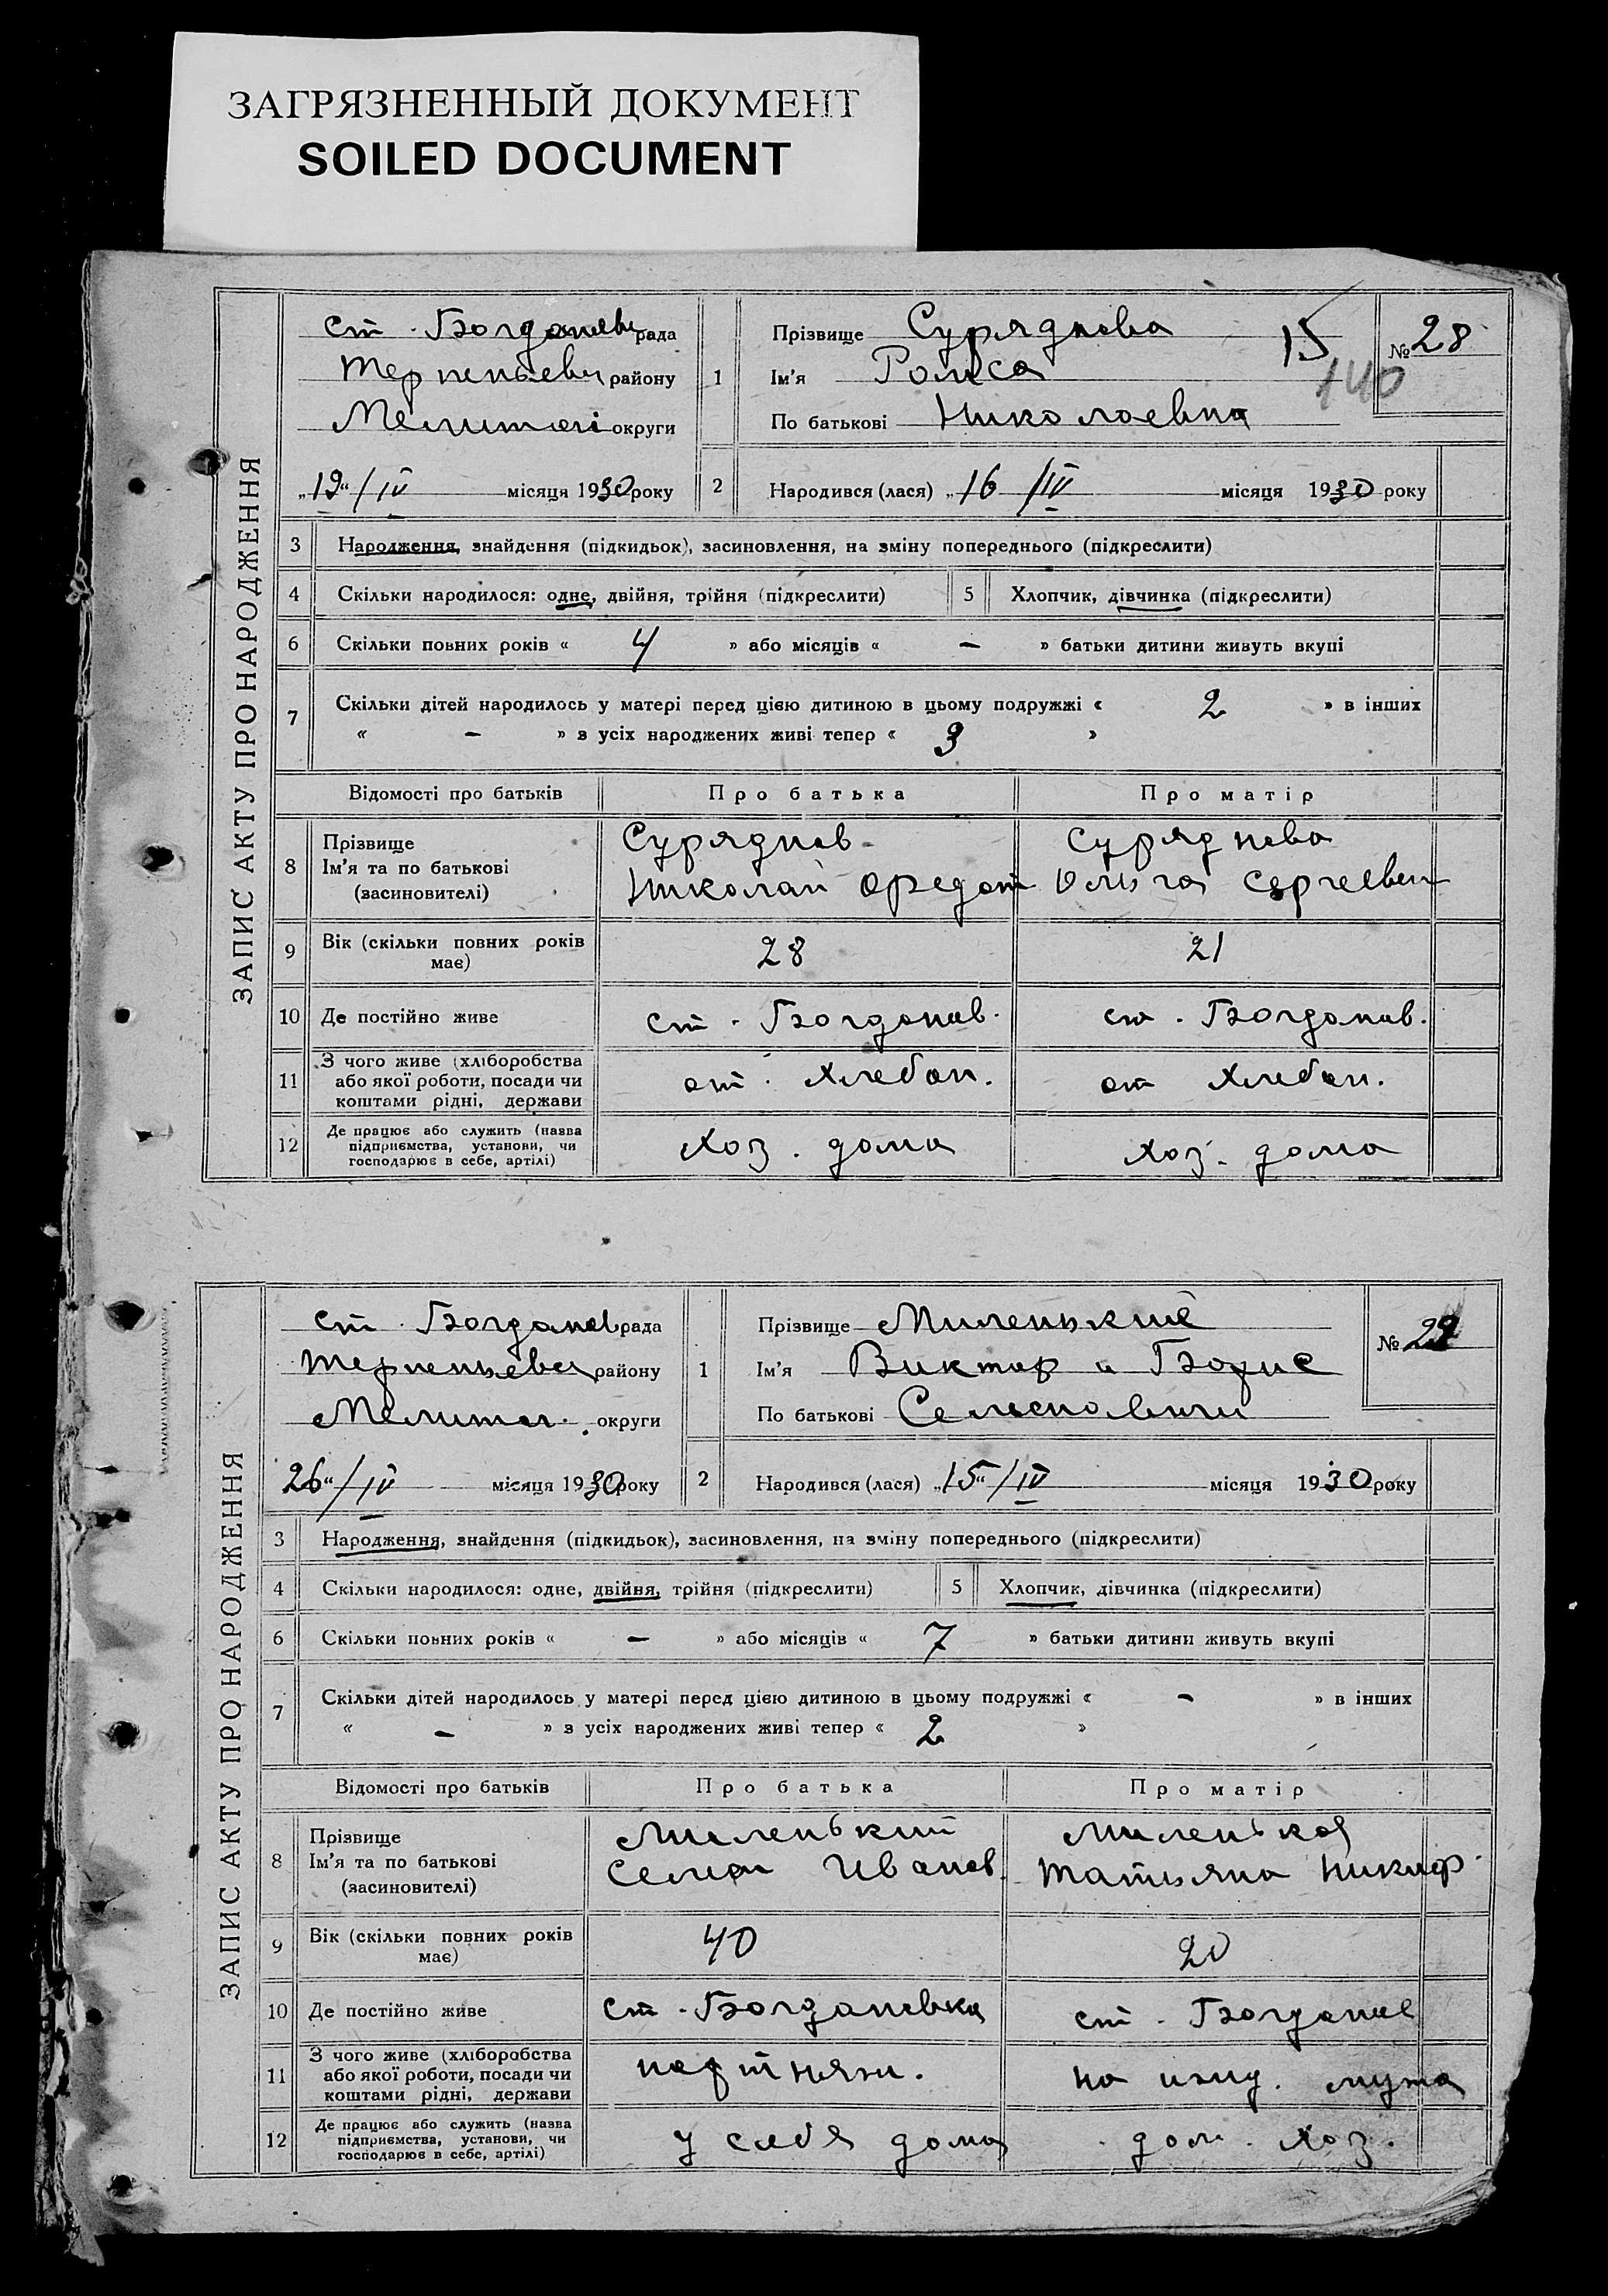 ЗАГРЯЗНЕННЫЙ ДОКУМЕНТ
SOILED DOCUMENT
ЗАПИС АКТУ ПРО НАРОДЖЕННЯ
ст. Богданевс рада
Терпеньевск району
Мелитоп округи
„19“/IV місяця 1930 року
1
Прізвище Суряднова
Ім'я Раиса
По батькові Николаевна
15
140
№ 28
2 Народився (лася) „16 /IV місяця 1930 року
3 Народження, знайдення (підкидьок), засиновлення, на зміну попереднього (підкреслити)
4 Скільки народилося: одне, двійня, трійня (підкреслити) 5 Хлопчик, дівчинка (підкреслити)
6 Скільки повних років « 4 » або місяців « – » батьки дитини живуть вкупі
7 Скільки дітей народилось у матері перед цією дитиною в цьому подружжі « 2 » в інших
« – » з усіх народжених живі тепер « 3 »
Відомості про батьків Про батька Про матір
8 Прізвище
Ім'я та по батькові
(засиновителі)
Суряднов
Николай Федот
Суряднова
Ольга Сергеевн
9 Вік (скільки повних років
має)
28 21
10 Де постійно живе ст. Богданов. ст. Богданов.
11 З чого живе (хліборобства
або якої роботи, посади чи
коштами рідні, держави
от. хлебоп. от хлебоп.
12 Де працює або служить (назва
підприємства, установи, чи
господарює в себе, артілі)
хоз. дома хоз. дома
ЗАПИС АКТУ ПРО НАРОДЖЕННЯ
ст. Богданов рада
Терпеньевск району
Мелитоп. округи
26“/IV місяця 1930 року
1
Прізвище Миленький
Ім'я Виктор и Борис
По батькові
№ 29
2 Народився (лася) „15“/IV місяця 1930 року
3 Народження, знайдення (підкидьок), засиновлення, на зміну попереднього (підкреслити)
4 Скільки народилося: одне, двійня, трійня (підкреслити) 5 Хлопчик, дівчинка (підкреслити)
6 Скільки повних років « – » або місяців « 7 » батьки дитини живуть вкупі
7 Скільки дітей народилось у матері перед цією дитиною в цьому подружжі « – » в інших
« – » з усіх народжених живі тепер « 2 »
Відомості про батьків Про батька Про матір
8 Прізвище
Ім'я та по батькові
(засиновителі)
Миленький
Семен Иванов.
Миленькая
Татьяна Никиф
9 Вік (скільки повних років
має)
40 20
10 Де постійно живе ст. Богдановка ст. Богданов
11 З чого живе (хліборобства
або якої роботи, посади чи
коштами рідні, держави
портняж. на ижд. мужа
12 Де працює або служить (назва
підприємства, установи, чи
господарює в себе, артілі)
у себя дома дом. хоз.